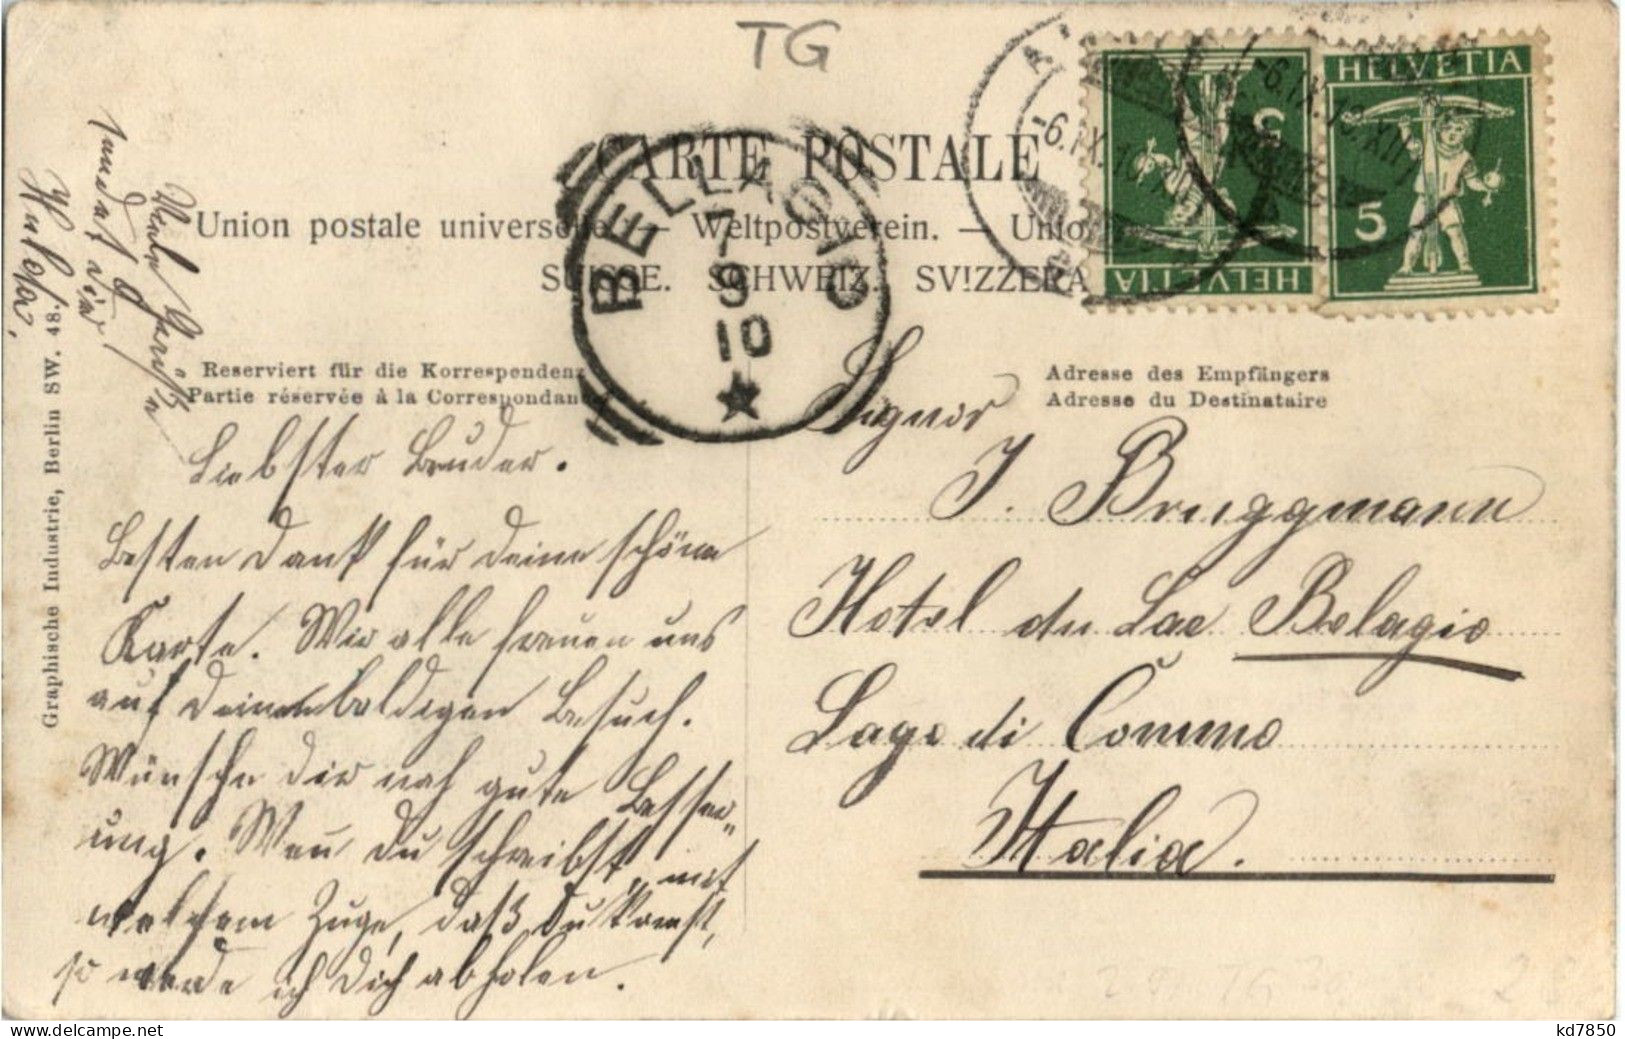 TG
CARTE POSTALE
Union postale universelle. — Weltpostverein. —
SUISSE. SCHWEIZ. SVIZZERA
HELVETIA
5
HELVETIA
5
-6.IX.10
-6.IX.10.XII
BELLAGIO
7
9
10
Reserviert für die Korrespondenz
Partie réservée à la Correspondance
Adresse des Empfängers
Adresse du Destinataire
Graphische Industrie, Berlin SW. 48.
Signor
J. Bruggmann
Hotel du Lac Belagio
Lago di Commo
Italia.
Liebster Bruder.
Besten Dank für Deine schöne
Karte. Wir alle freuen uns
auf Deinen baldigen Besuch.
Wünsche Dir noch gute Besser„
ung. Wenn Du schreibst, mit
welchem Zuge, daß Du kommst,
so werde ich Dich abholen.
Viele Grüße
kd7850